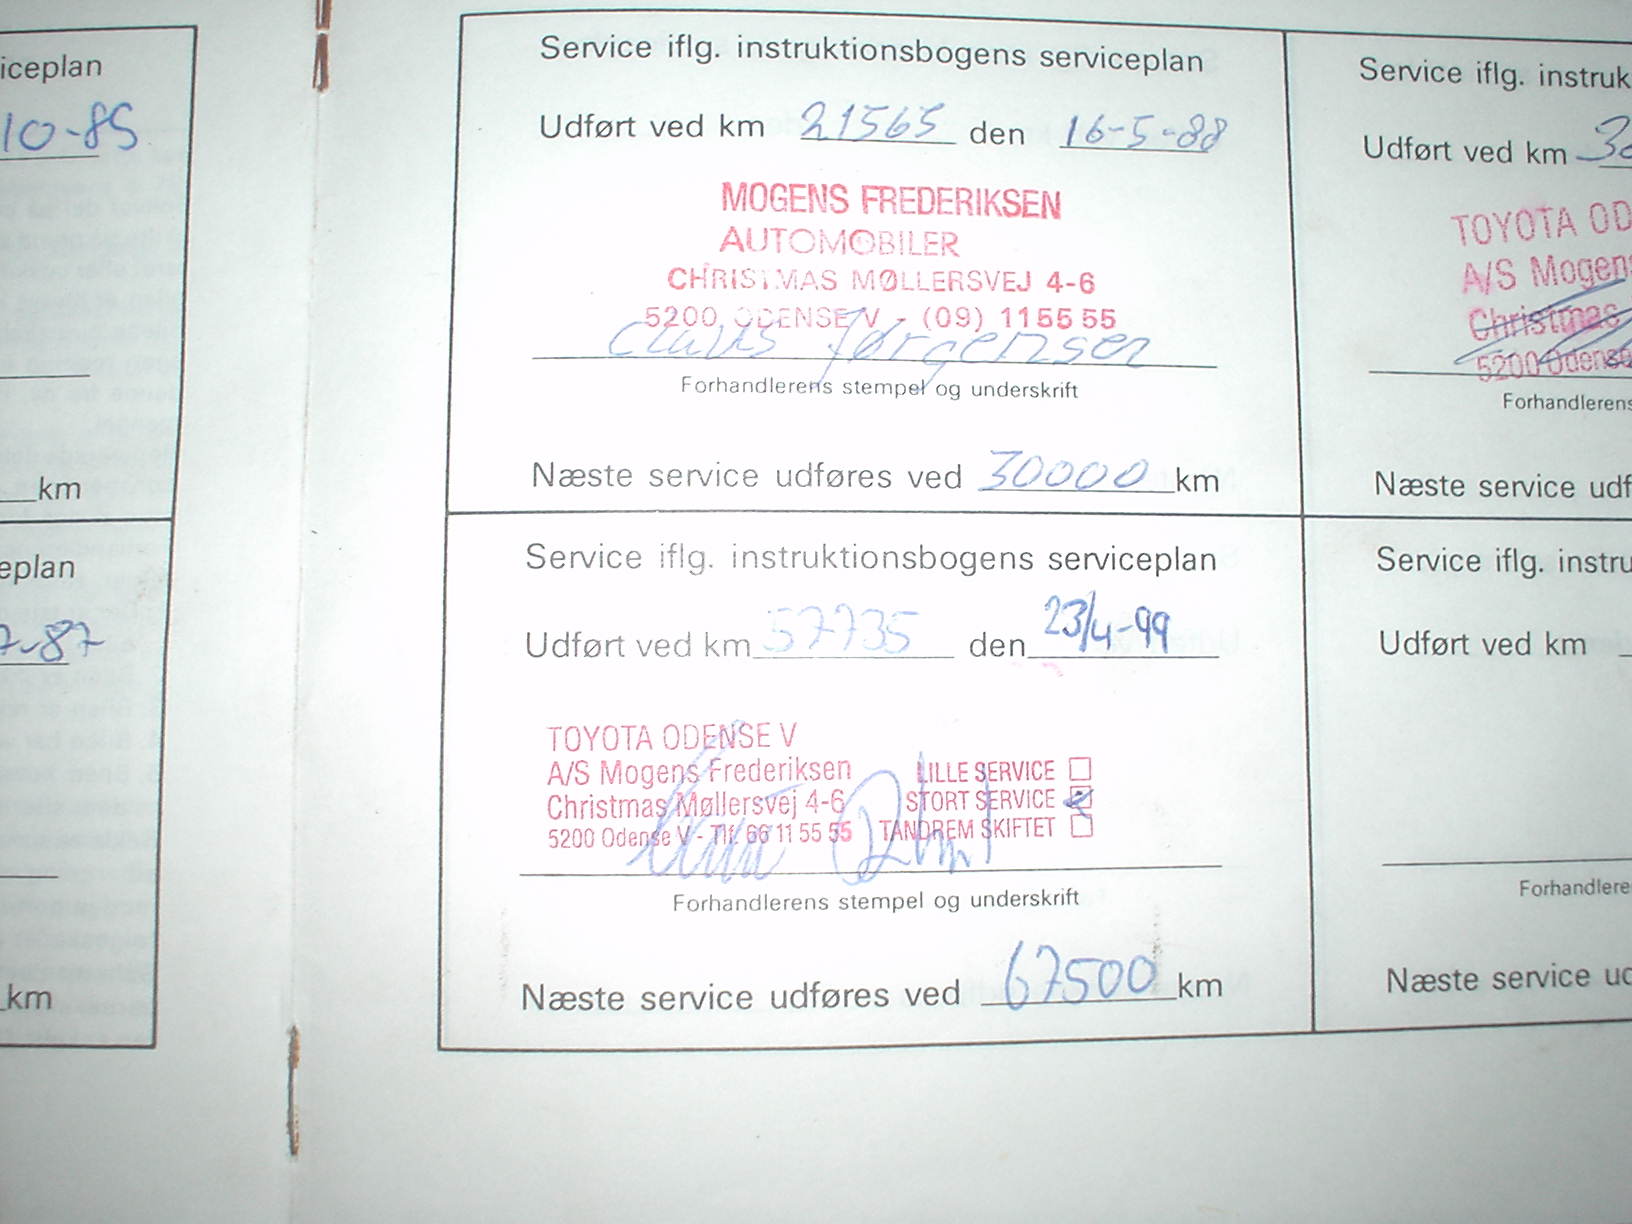 iceplan
10-85
km
eplan
7-87
km
Service iflg. instruktionsbogens serviceplan
Udført ved km 21565 den 16-5-88
MOGENS FREDERIKSEN
AUTOMOBILER
CHRISTMAS MØLLERSVEJ 4-6
5200 ODENSE V - (09) 11 55 55
Claus Jørgensen
Forhandlerens stempel og underskrift
Næste service udføres ved 30000 km
Service iflg. instruktionsbogens serviceplan
Udført ved km 57735 den 23/4-99
TOYOTA ODENSE V
A/S Mogens Frederiksen LILLE SERVICE
Christmas Møllersvej 4-6 STORT SERVICE
5200 Odense V - Tlf. 66 11 55 55 TANDREM SKIFTET
Forhandlerens stempel og underskrift
Næste service udføres ved 67500 km
Service iflg. instruk
Udført ved km 3
TOYOTA OD
A/S Mogens
Christmas
5200 Odense
Forhandlerens
Næste service udf
Service iflg. instru
Udført ved km
Forhandlere
Næste service ud